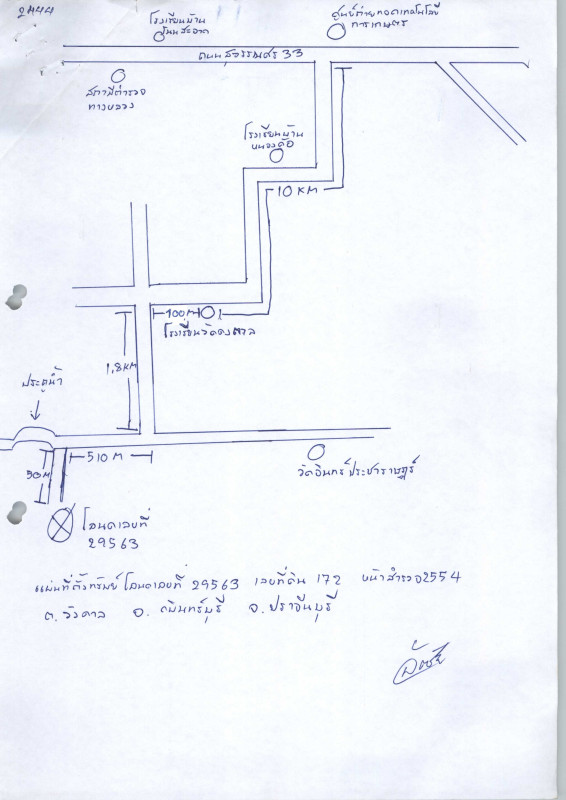 2444
โรงเรียนบ้าน
โนนสะอาด
ศูนย์ถ่ายทอดเทคโนโลยี
การเกษตร
ถนนสุวรรณศร 33
สถานีตำรวจ
โรงเรียนบ้าน
หนองคือ
10 KM
100M
โรงเรียนวัดดงตาล
1,8KM
ประตูน้ำ
510 M
50M
วัดอินทร์ประชาราษฎร์
โฉนดเลขที่
29563
แผนที่ตั้งทรัพย์ โฉนดเลขที่ 29563 เลขที่ดิน 172 หน้าสำรวจ2554
ต. วังดาล อ. กบินทร์บุรี จ. ปราจีนบุรี